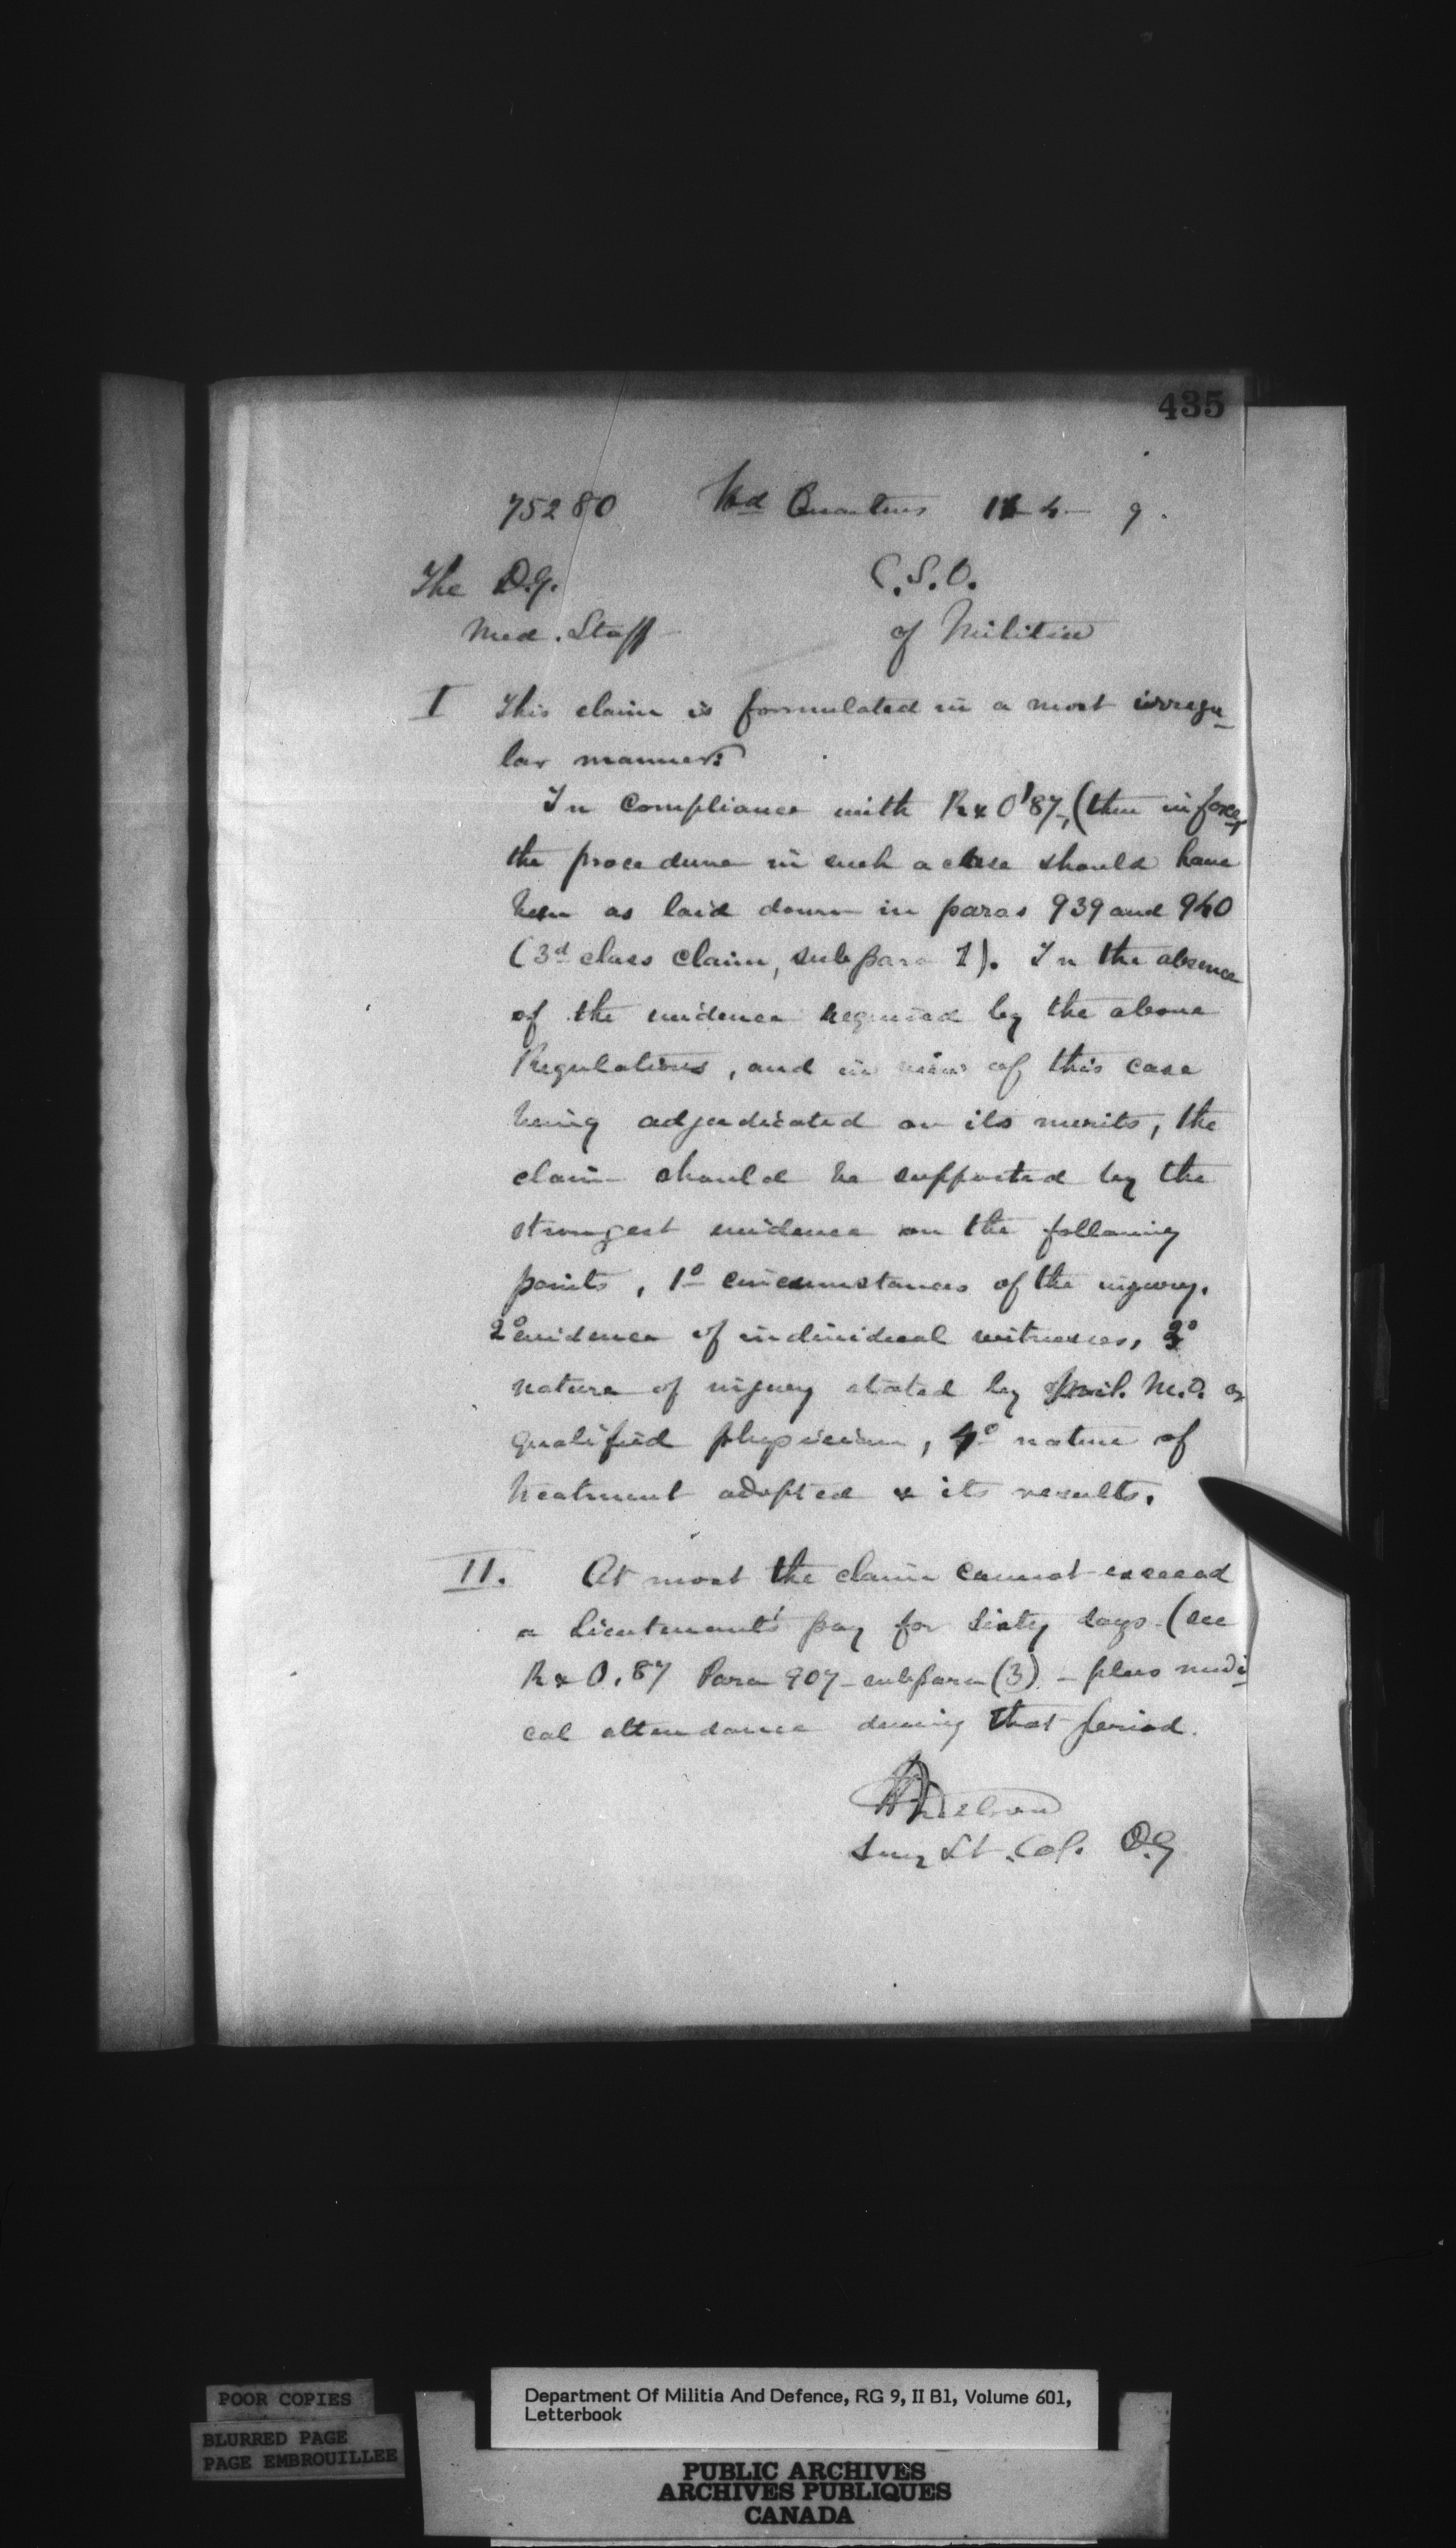 435
75280 Hd Quarters 4 9.
The D.G. C.S.O.
Med. Staff of Militia
I This claim is formulated in a most irregu-
lar manner:
In compliance with R & O '87, (then in force,
the procedure in such a case should have
been as laid down in paras 939 and 940
(3d class claim, subpara 1). In the absence
of the evidence required by the above
Regulations, and in view of this case
being adjudicated on its merits, the
claim should be supported by the
strongest evidence on the following
points, 1º circumstances of the injury.
2º evidence of individual witnesses, 3º
nature of injury stated by mil. M.O. or
qualified physician, 4º nature of
treatment adopted & its results.
II. At most the claim cannot exceed
a Lieutenant's pay for sixty days (see
R & O. 87 Para 907 - subpara (3) - plus medi-
cal attendance during that period.
Neilson
Surg Lt. Col. D.G
POOR COPIES
BLURRED PAGE
PAGE EMBROUILLEE
Department Of Militia And Defence, RG 9, II B1, Volume 601,
Letterbook
PUBLIC ARCHIVES
ARCHIVES PUBLIQUES
CANADA